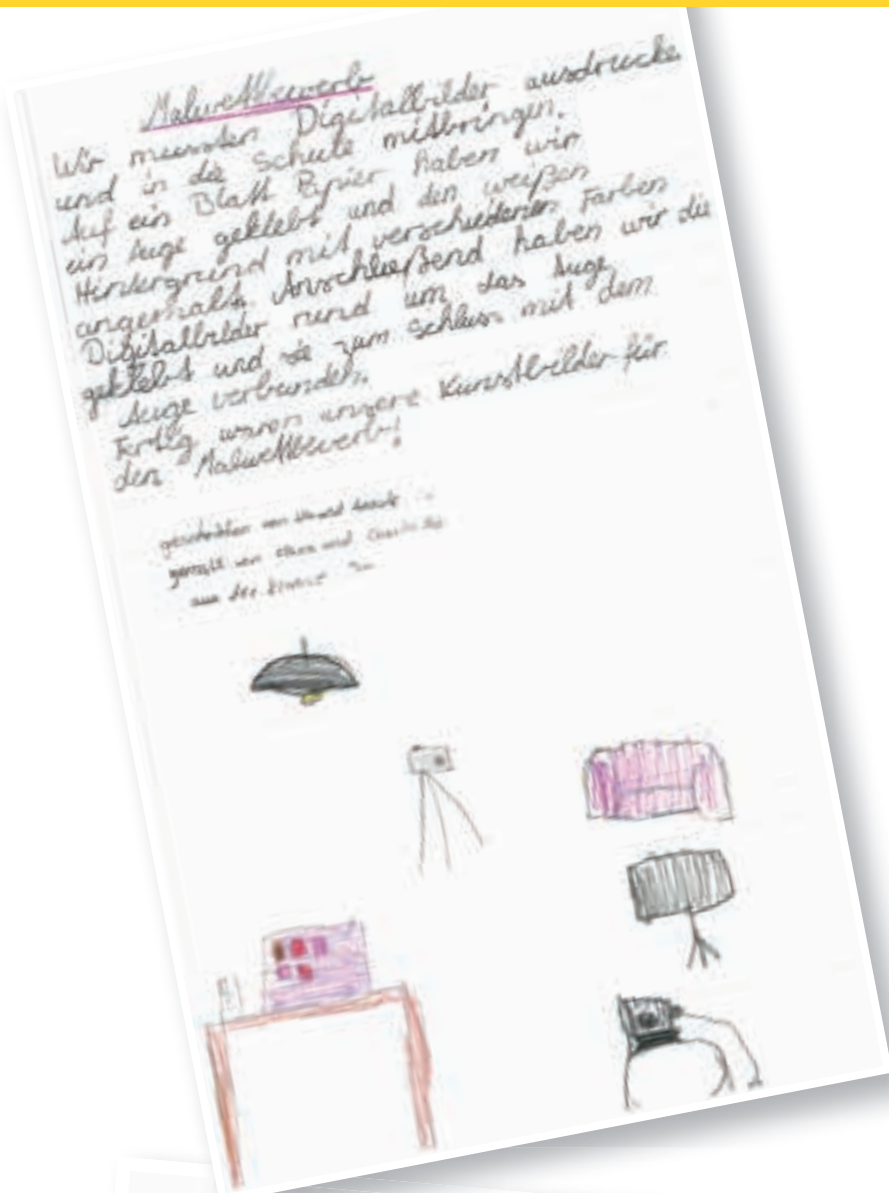 Malwettbewerb
Wir mussten Digitalbilder ausdrucke
und in die Schule mitbringen.
Auf ein Blatt Papier haben wir
ein Auge geklebt und den weißen
Hintergrund mit verschiedenen Farben
angemalt. Anschließend haben wir die
Digitalbilder rund um das Auge
geklebt und sie zum Schluss mit dem
Auge verbunden.
Fertig waren unsere Kunstbilder für
den Malwettbewerb!
geschrieben von
gemalt von und
aus der Klasse